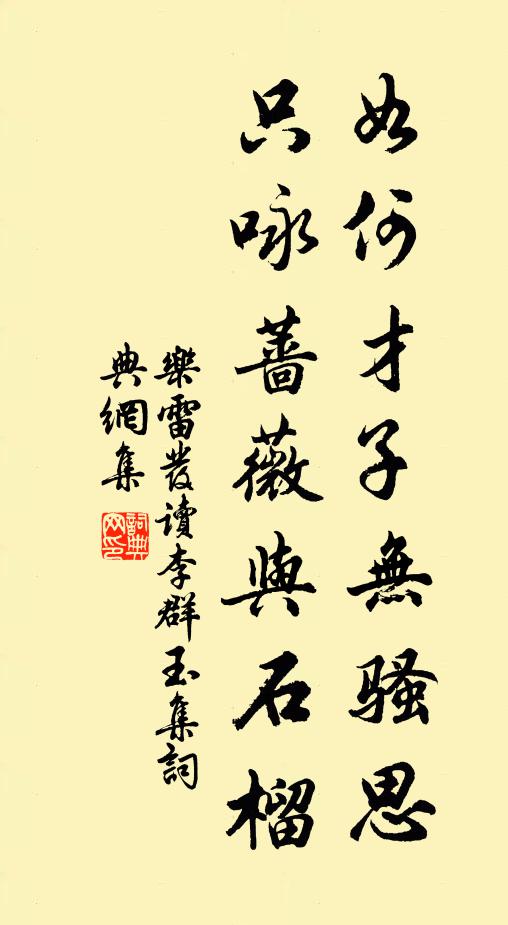 如何才子無騷思
只咏薔薇與石榴
樂雷發讀李群玉集詞
典網集
詞典
网印